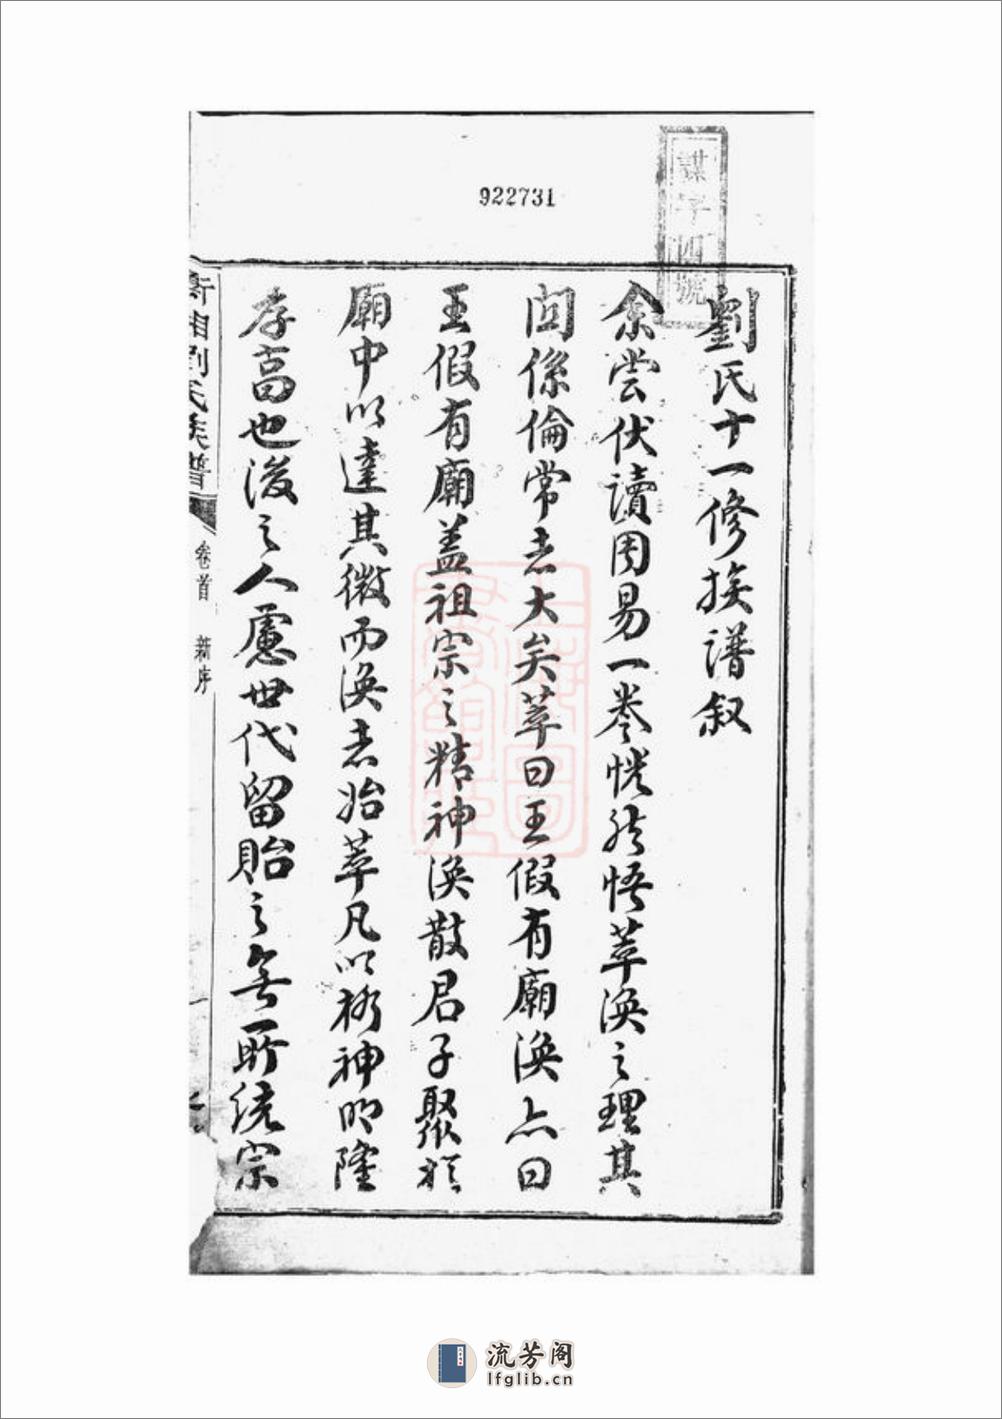 922731
謀字四號
劉氏十一修族譜叙
余嘗伏讀周易一卷恍然悟萃渙之理其
関係倫常者大矣萃曰王假有廟渙亦曰
王假有廟盖祖宗之精神渙散君子聚於
廟中以達其微而渙者始萃凡以格神明隆
孝享也後之人慮世代留貽之無所統宗
湘劉氏族譜
卷首 新序
上海圖書館藏
流芳阁
lfglib.cn